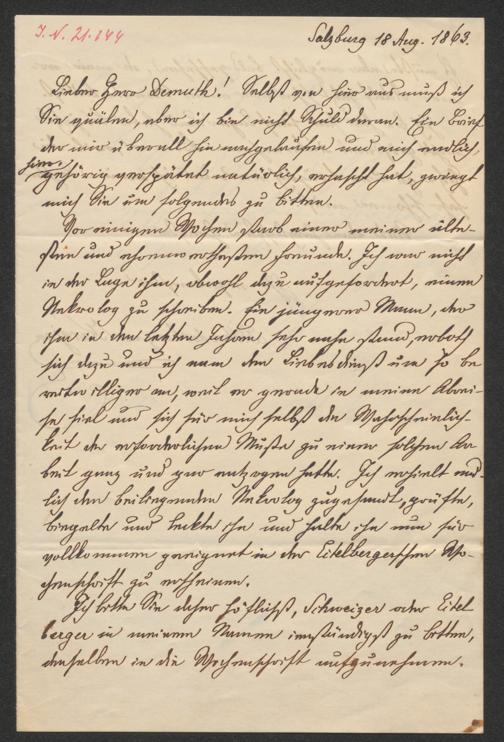 I. N. 21.844
Salzburg 18 Aug. 1863.
Lieber Herr Demuth! Selbst von hier aus muß ich
Sie quälen, aber ich bin nicht Schuld daran. Ein Brief
der mir überall hin nachgelaufen und mich endlich,
hier,
gehörig verspätet natürlich, erhascht hat, zwingt
mich Sie um folgendes zu bitten.
Vor einigen Wochen starb einer meiner älte-
sten und ehrenwerthesten Freunde. Ich war nicht
in der Lage ihm, obwohl dazu aufgefordert, einen
Nekrolog zu schreiben. Ein jüngerer Mann, der
ihm in den letzten Jahren sehr nahe stand, erboth
sich dazu und ich nam den Liebesdienst um so be
reitwilliger an, weil er gerade in meine Abrei-
se fiel und sich für mich selbst die Wahrscheinlich-
keit der erforderlichen Muße zu einer solchen Ar
beit ganz und gar entzogen hatte. Ich erhielt end-
lich den beiliegenden Nekrolog zugesandt, prüfte,
bügelte und leckte ihn und halte ihn nun für
vollkommen geeignet in der Eitelbergerschen Wo-
chenschrift zu erscheinen.
Ich bitte Sie daher höflichst, Schweizer oder Eitel
berger in meinem Namen inständigst zu bitten,
denselben in die Wochenschrift aufzunehmen.